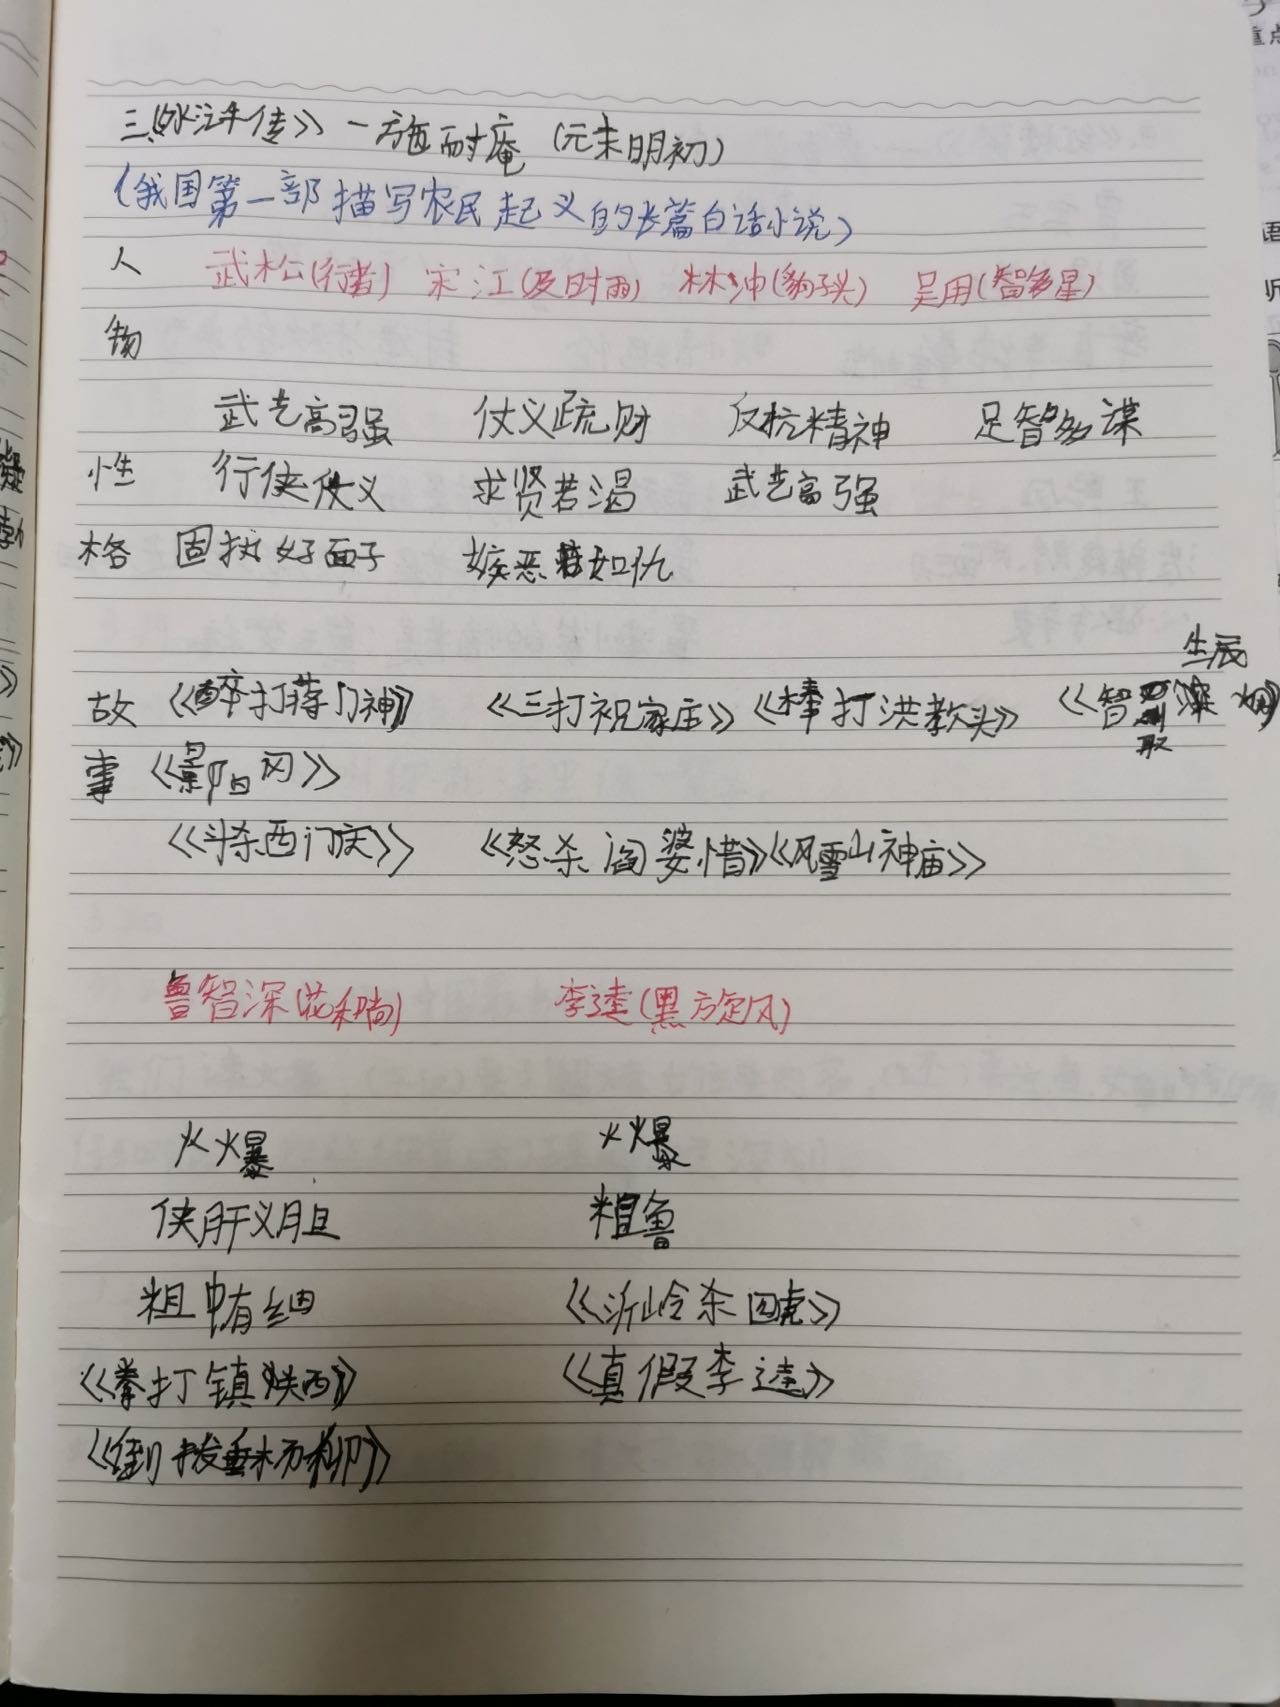 三《水浒传》—施耐庵(元末明初)
(我国第一部描写农民起义的长篇白话小说)
人 武松(行者) 宋江(及时雨) 林冲(豹子头) 吴用(智多星)
物
武艺高强 仗义疏财 反抗精神 足智多谋
性 行侠仗义 求贤若渴 武艺高强
格 固执好面子 嫉恶如仇
生辰
故 《醉打蒋门神》 《三打祝家庄》《棒打洪教头》 《智取
事 《景阳冈》
《斗杀西门庆》 《怒杀阎婆惜》《风雪山神庙》
鲁智深(花和尚) 李逵(黑旋风)
火爆 火爆
侠肝义胆 粗鲁
粗中有细 《沂岭杀四虎》
《拳打镇关西》 《真假李逵》
《倒拔垂杨柳》